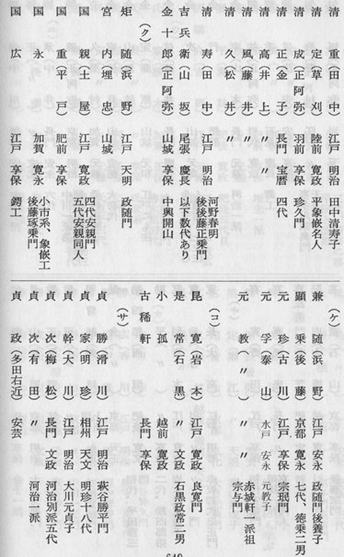 清重(田中) 江戸 明治 田中清寿子
清定(草刈) 陸前 寛政 平象嵌名人
清成(正阿弥) 羽前 享保 珍久門
清正(金子) 長門 宝暦 四代
清高(井上) 〃 〃
清風(藤井) 〃 〃
清久(松井) 〃 〃
清寿(田中) 江戸 明治 河野春明後後藤正乗門
吉兵衛(山坂) 尾張 慶長 以下数代あり
金十郎(正阿弥) 山城 享保 中興開山
(ク)
矩随(浜野) 江戸 天明 政随門
宮内(埋忠) 山城
国親(土屋) 江戸 寛政 四代安親門五代安親同人
国重(平戸) 肥前 享保
国永 加賀 寛永 小市系、象嵌工後藤琢乗門
国広 江戸 享保 鐔工
(ケ)
兼随(浜野) 江戸 安永 政随門後養子
顕乗(後藤) 京都 寛永 七代、徳乗二男
元珍(古川) 江戸 享保 宗珉門
元孚(泰山) 水戸 安永 元教子
元教(〃) 〃 〃 赤城軒一派祖宗与門
(コ)
昆寛(岩本) 江戸 寛政 良寛門
是常(石黒) 〃 文政 石黒政常二男
小孤 越前 寛政
古稀軒 長門 享保
(サ)
貞勝(滑川) 江戸 明治 萩谷勝平門
貞家(明珍) 相州 天文 明珍十八代
貞幹(大川) 江戸 明治 大川元貞子
貞次(梅松) 長門 文政 河治別派五代
貞次(有田) 〃 〃 河治一派
貞政(多田右近) 安芸